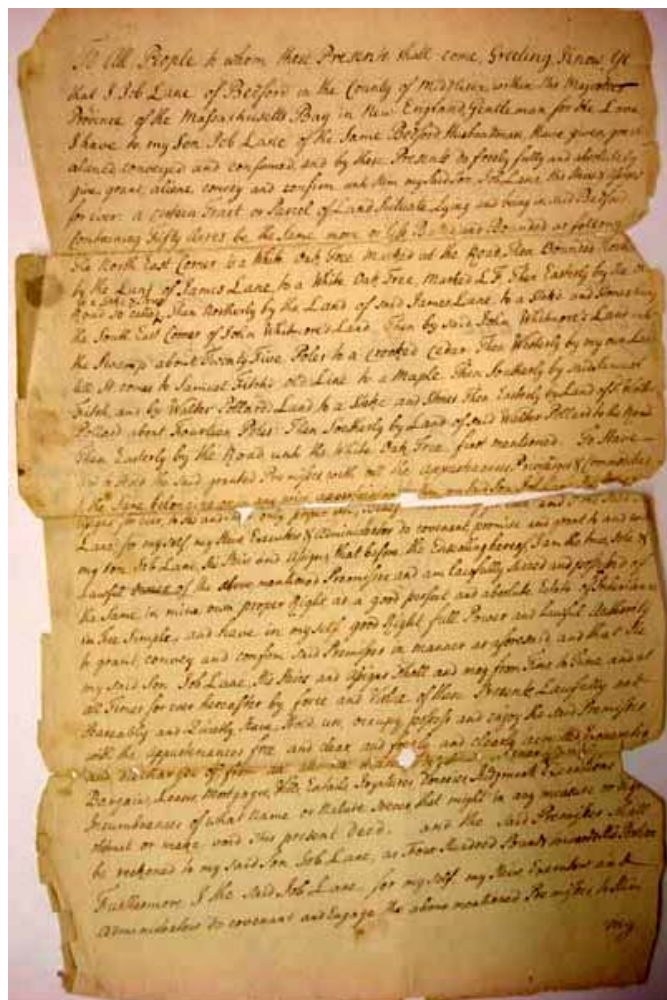 To All People to whom these Presents shall come, Greeting, Know Ye
that I Job Lane of Bedford in the County of Middlesex within His Majesties
Province of the Massachusetts Bay in New England, Gentleman for the Love
I have to my Son Job Lane of the Same Bedford Husbandman, Have given, granted
aliened conveyed and confirmed, and by these Presents do freely fully and absolutely
give, grant, aliene, convey and confirm unto Him my said Son Job Lane His Heirs & Assigns
for ever: a certain Tract or Parcel of Land Situate Lying and being in said Bedford
Containing Fifty Acres be the Same more or less Butted and Bounded as follows
The North East Corner is a White Oak Tree Marked at the Road, Then Bounded
by the Land of James Lane to a White Oak Tree, Marked L F. Then Easterly by the
Road so called, Then Northerly by the Land of said James Lane to a Stake and Stones
the South East Corner of John Whitmore's Land. Then by said John Whitmore's Land
the Swamp about Twenty Five Poles to a crooked Cedar. Then Westerly by my own Land
till It comes to Samuel Fitch's old Line to a Maple. Then Southerly by said Samuel
Fitch, and by Walter Pollard's Land to a Stake and Stones Then Easterly by Land of
Pollard about Fourteen Poles. Then Southerly by Land of said Walter Pollard to the Road
Then Easterly by the Road unto the White Oak Tree first mentioned. To Have
the said granted Premises with all the appurtenances Privileges &
the Same belonging or any wise
Assigns for ever, to His and only proper use,
Lane for my self my Heirs Executors & Administrators do covenant, promise and grant to and with
my son Job Lane, His Heirs and Assigns, that before the Ensealing hereof, I am the true, Sole &
Lawful of the above mentioned Premises and am lawfully seized and possessed of
the Same in mine own proper Right as a good perfect and absolute Estate of Inheritance
in Fee Simple, and have in my self good Right full Power and lawful Authority
to grant, convey and confirm said Premises in manner as aforesaid, and that He
my said Son Job Lane, His Heirs and Assigns shall and may from Time to Time and at
all Times for ever hereafter by force and Virtue of these Presents Lawfully and
Peaceably and Quietly Have, Hold use, occupy, possess and enjoy the said Premises
with the appurtenances free and clear and freely and clearly
and discharged of from all
Bargains, Leases, Mortgages, Wills, Entails, Joyntures Judgments Executions
Incumbrances of what Name or Nature soever that might in any measure or degree
obstruct or make void this present Deed. and the said Premises shall
be reckoned to my said Son Job Lane, as Four Hundred Pounds
Furthermore I the said Job Lane for my self my Heirs Executors and
Administrators do covenant and Engage the above mentioned Premises to Him
my